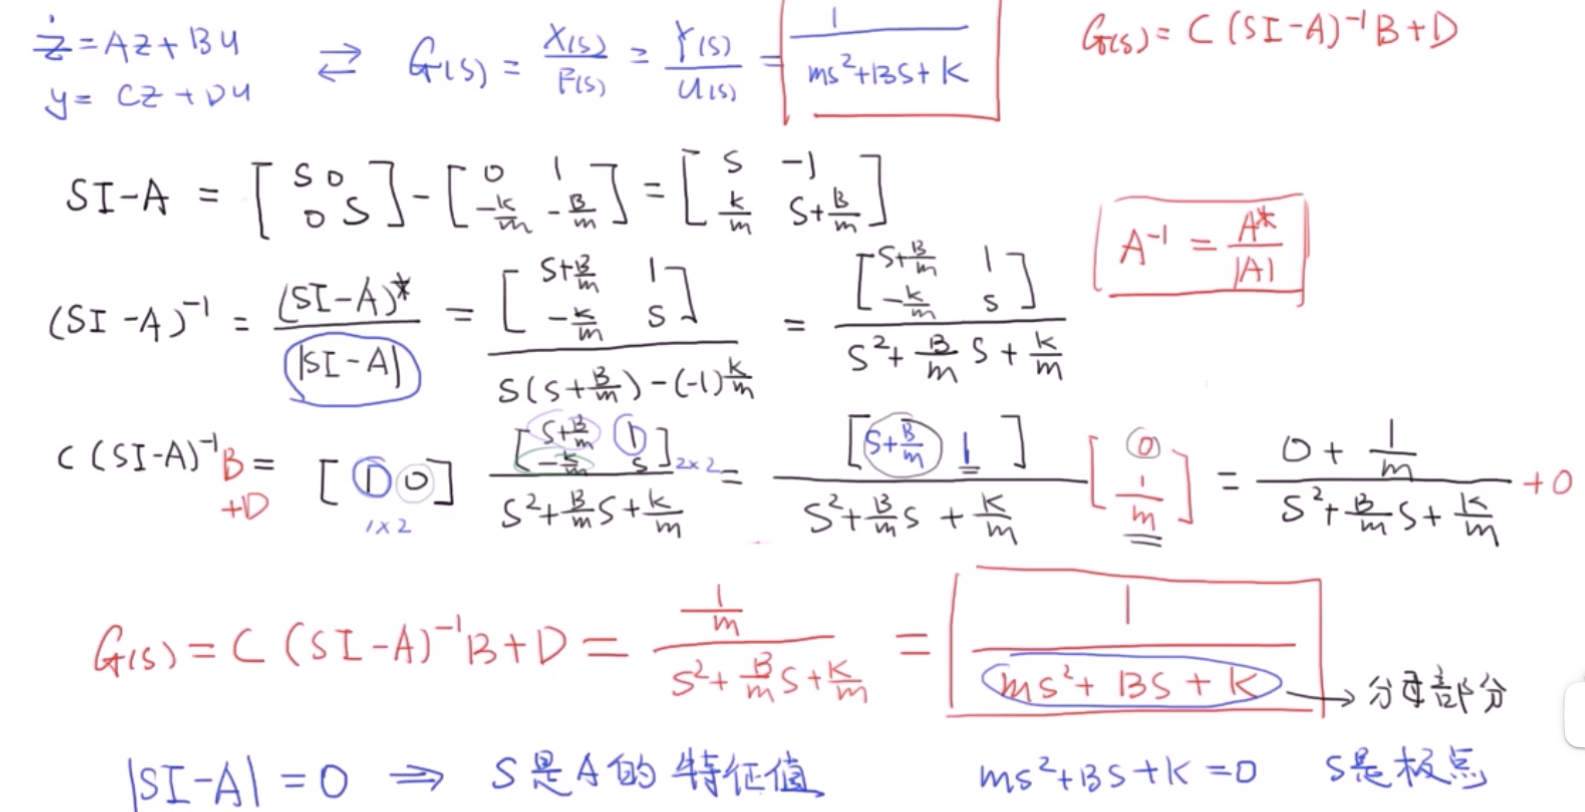 ż = Az + Bu ⇄ G(s) = X(s)/F(s) = Y(s)/U(s) = 1/(ms²+Bs+K) G(s) = C (SI-A)⁻¹B+D
y = Cz + Du
SI-A = [S 0; 0 S] - [0 1; -k/m -B/m] = [S -1; k/m S+B/m]
A⁻¹ = A*/|A|
(SI-A)⁻¹ = (SI-A)*/|SI-A| = [S+B/m 1; -k/m S]/(S(S+B/m)-(-1)k/m) = [S+B/m 1; -k/m S]/(S²+B/m S+k/m)
C (SI-A)⁻¹B +D = [1 0] 1×2 [S+B/m 1; -k/m S] 2×2/(S²+B/m S+k/m) = [S+B/m 1]/(S²+B/m S+k/m) [0; 1/m] = (0+1/m)/(S²+B/m S+k/m) +0
G(s) = C (SI-A)⁻¹B+D = (1/m)/(S²+B/m S+k/m) = 1/(ms²+Bs+K) → 分母部分
|SI-A| = 0 ⇒ S是A的特征值 ms²+Bs+K=0 S是极点